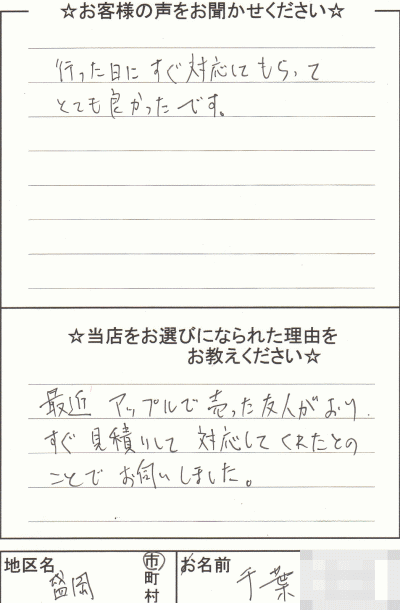 ☆お客様の声をお聞かせください☆
行った日にすぐ対応してもらって
とても良かったです。
☆当店をお選びになられた理由を
お教えください☆
最近 アップルで売った友人がおり
すぐ見積りして 対応してくれたとの
ことでお伺いしました。
地区名 盛岡 市町村
お名前 千葉